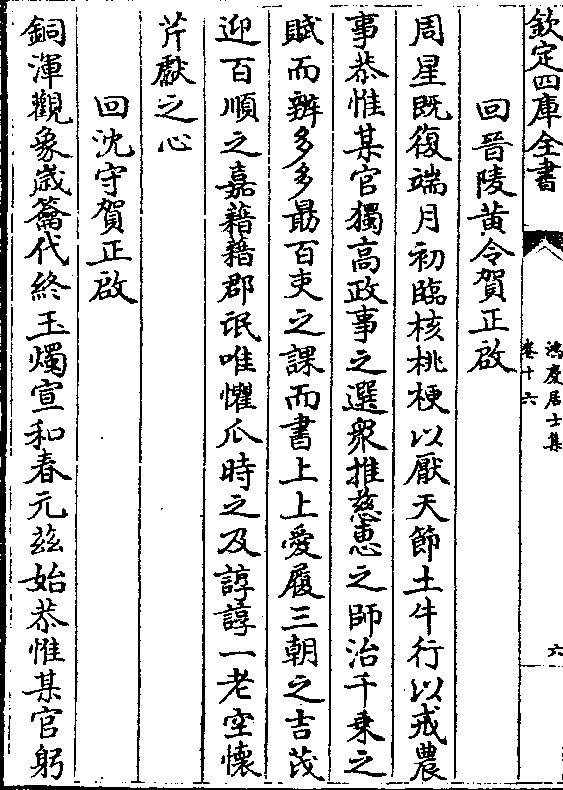 欽定四庫全書
鴻慶居士集
卷十六
六
回晉陵黃令賀正啟
周星既復端月初臨核桃梗以厭天節土牛行以戒農
事恭惟某官獨高政事之選衆推慈惠之師治千乗之
賦而辦多多最百吏之課而書上上爰履三朝之吉茂
迎百順之嘉藉藉郡氓唯懼瓜時之及諄諄一老空懐
芹獻之心
回沈守賀正啟
銅渾觀象歳籥代終玉燭宣和春元兹始恭惟某官躬